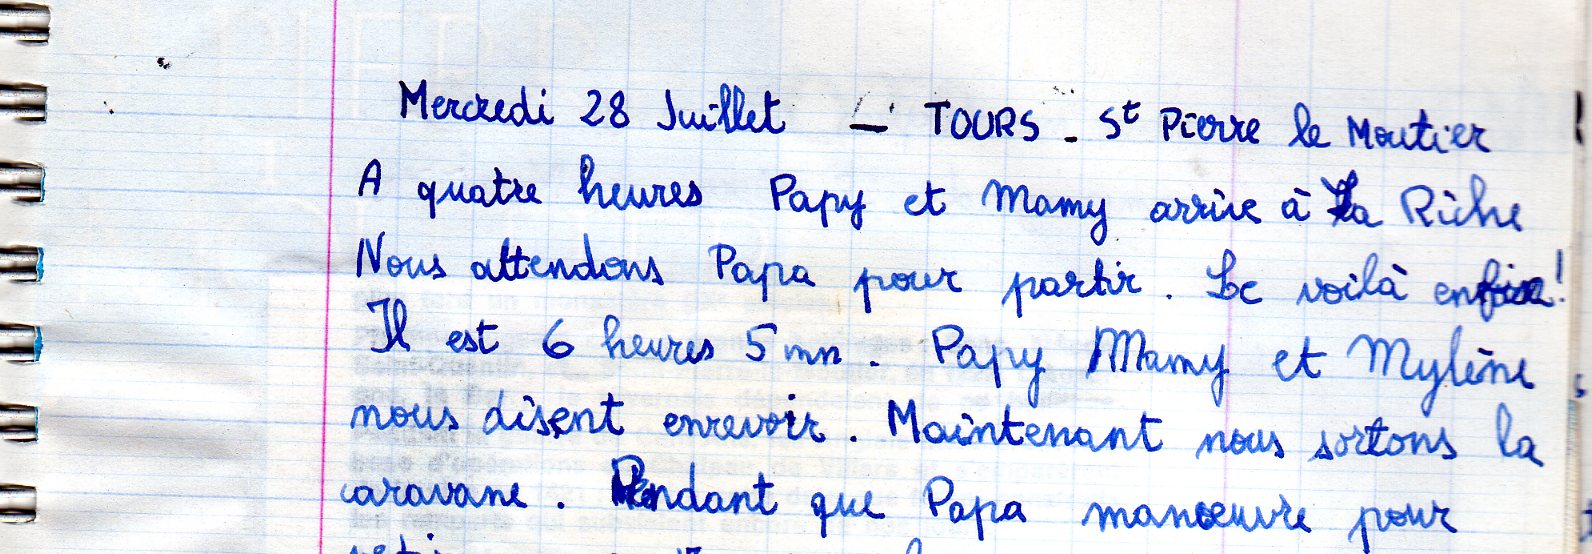 Mercredi 28 Juillet — TOURS - St Pierre le Moutier
A quatre heures Papy et Mamy arrive à La Riche
Nous attendons Papa pour partir. Le voilà enfin!
Il est 6 heures 5 mn. Papy Mamy et Mylène
nous disent enrevoir. Maintenant nous sortons la
caravane. Pendant que Papa manœuvre pour